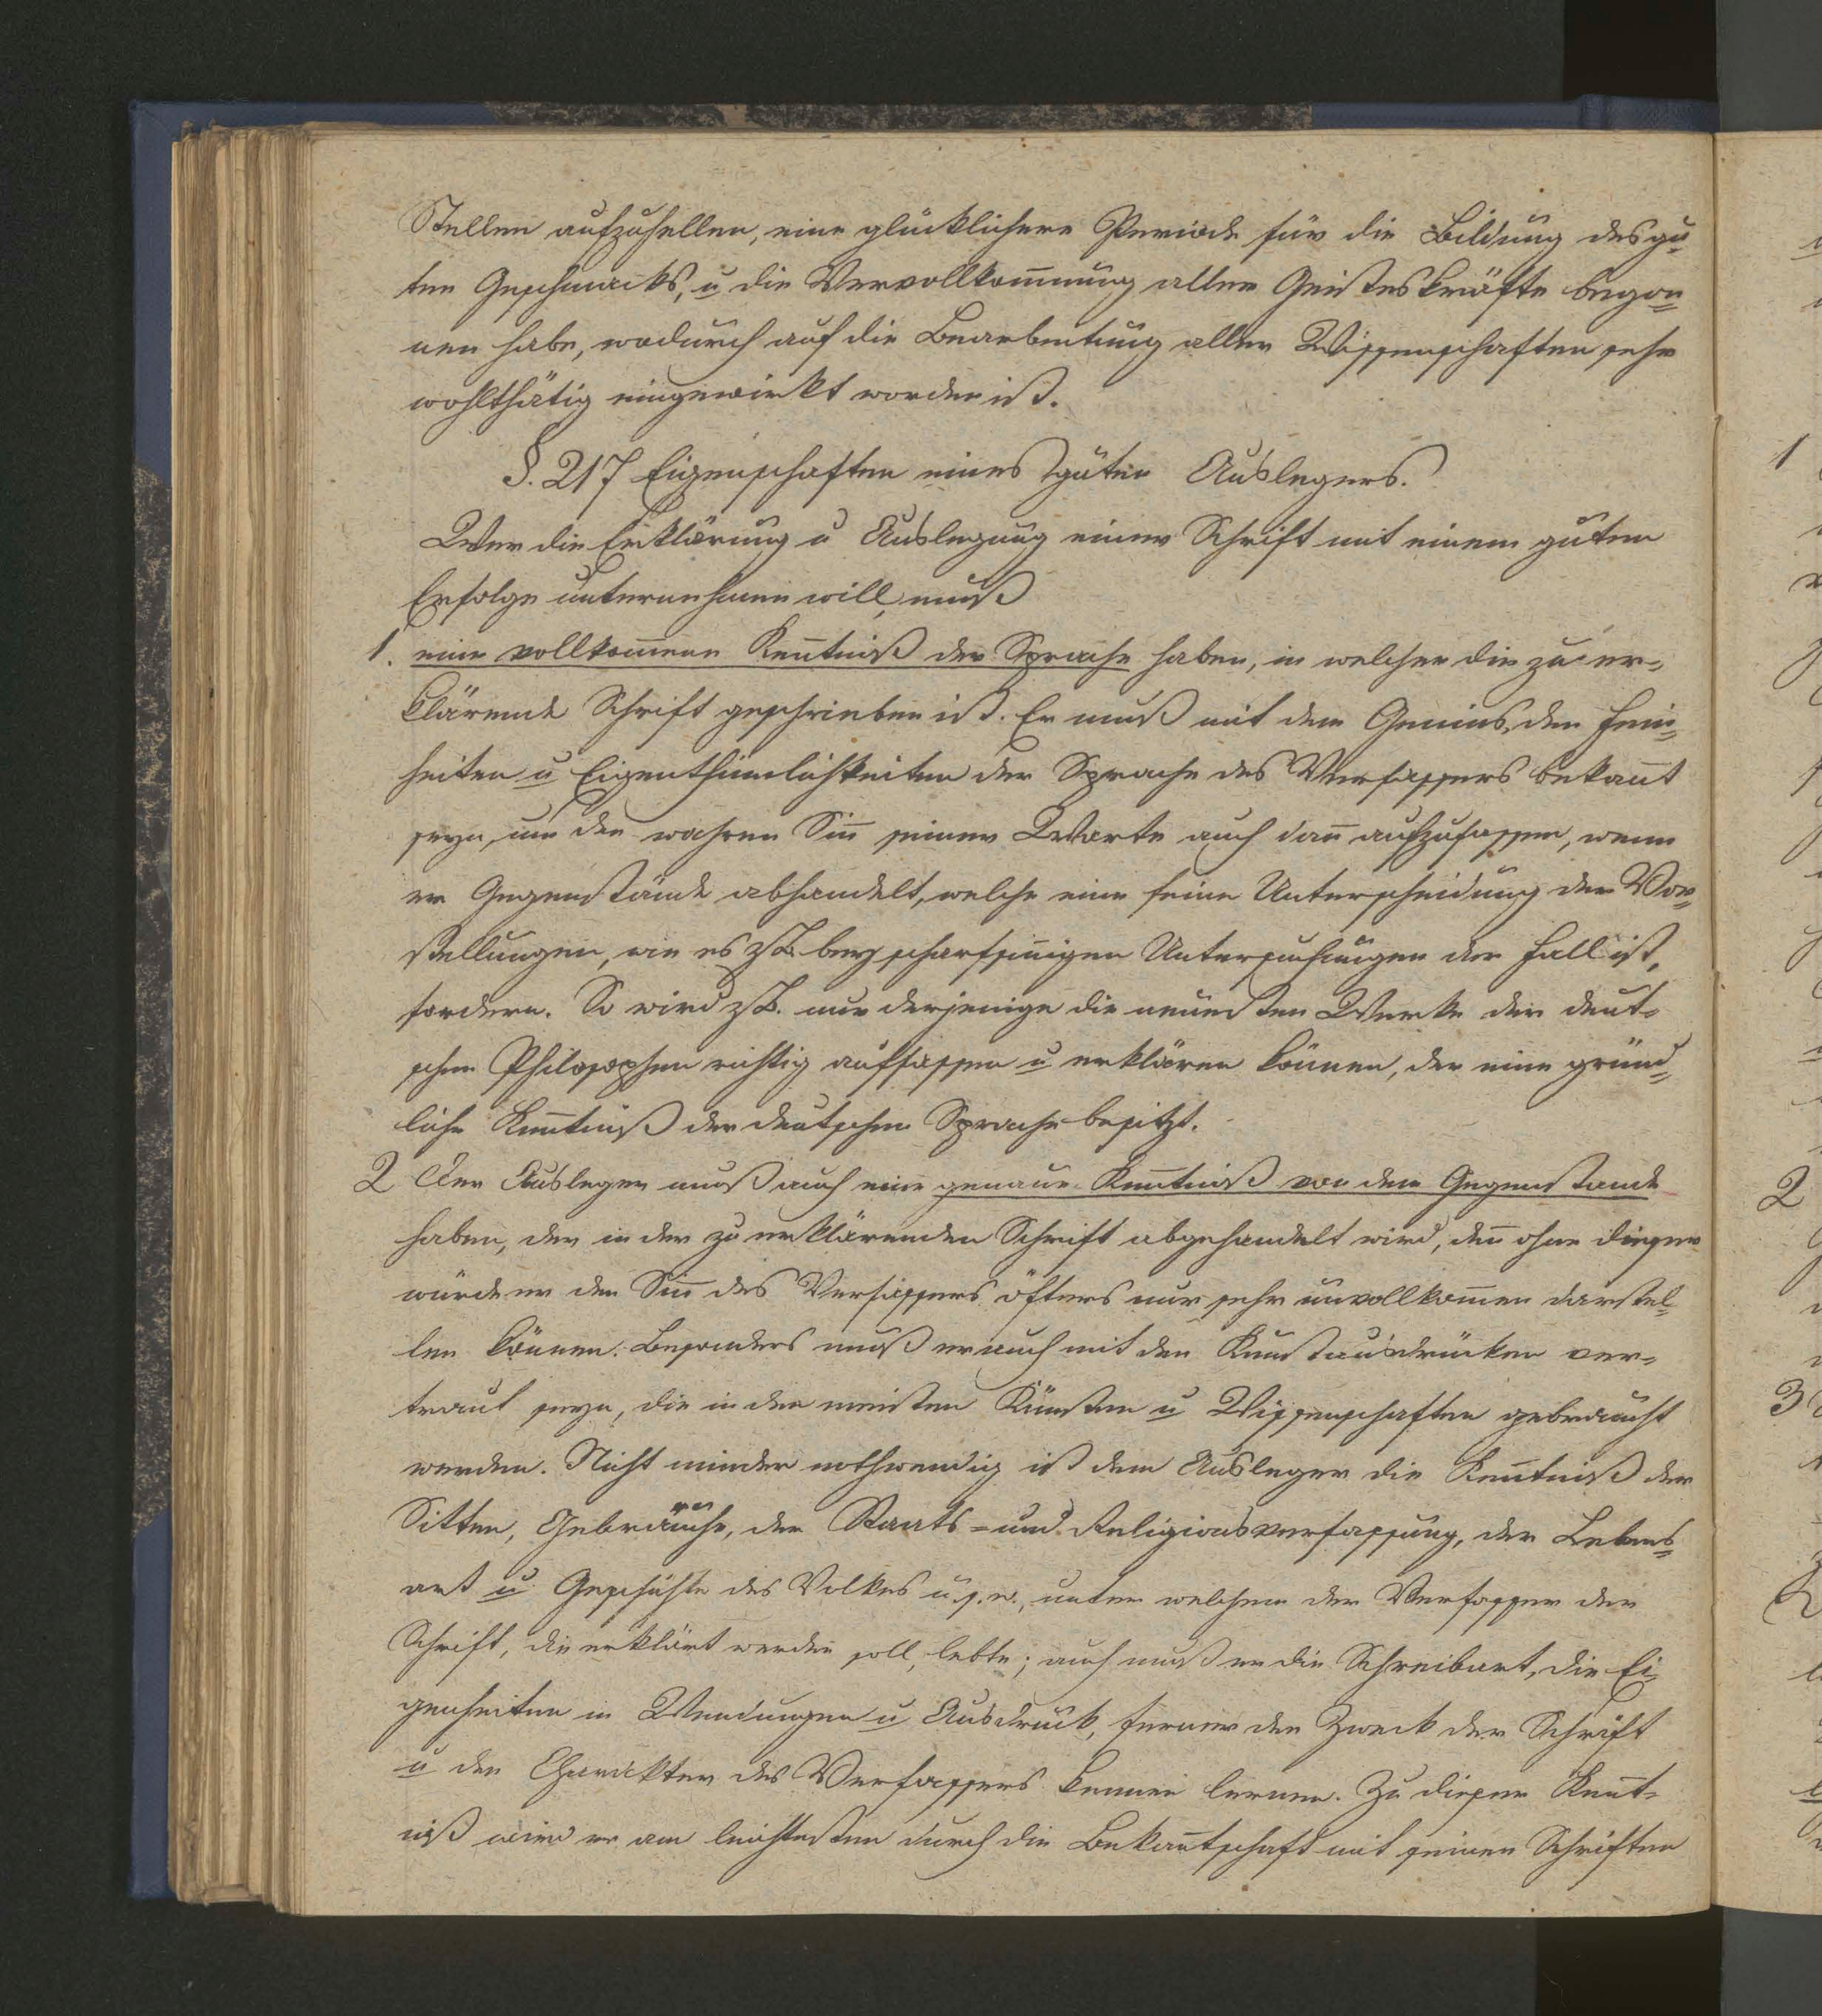 Stellen aufzuhellen, eine glücklichere Periode für die Bildung des gu-
ten Geschmacks, u die Vervollkom̅nung aller Geisteskräfte begon=
nen habe, wodurch auf die Bearbeitung aller Wissenschaften sehr
wohlthätig eingewirkt worden ist.
§. 217 Eigenschaften eines guten Auslegers.
Wer die Erklärung u Auslegung einer Schrift mit einem guten
Erfolge unternehmen will, muß
1. eine vollkom̅ene Ken̅tniß der Sprache haben, in welcher die zu er=
klärende Schrift geschrieben ist. Er muß mit dem Genius, den Fein=
heiten u Eigenthümlichkeiten der Sprache des Verfassers bekan̅t
seyn, um den wahren Sin̅ seiner Worte auch dan̅ aufzufassen, wenn
er Gegenstände abhandelt, welche eine feine Unterscheidung der Vor=
stellungen, wie es z.B. bey scharfsin̅igen Untersuchungen der Fall ist,
fordern. So wird z.B. nur derjenige die neuesten Werke der deut=
schen Philosophen richtig auffassen u erklären können, der eine gründ=
liche Ken̅tniß der deutschen Sprache besitzt.
2 Der Ausleger muß auch eine genaue Ken̅tniß von dem Gegenstande
haben, der in der zu erklärenden Schrift abgehandelt wird, den̅ ohne dieser
würde er den Sin̅ des Verfassers öfters nur sehr unvollkom̅en darstel=
len können. Besonders muß er auch mit den Kunstausdrücken ver=
traut seyn, die in den meisten Künsten u Wissenschaften gebraucht
werden. Nicht minder nothwendig ist dem Ausleger die Ken̅tniß der
Sitten, Gebräuche, der Staats= und Religionsverfassung, der Lebens=
art u Geschichte des Volkes u.s.w., unter welchem der Verfasser der
Schrift, die erklärt werden soll, lebte; auch muß er die Schreibart, die Ei=
genheiten in Wendungen u Ausdruck, ferner den Zweck der Schrift
u den Charakter des Verfassers kennen lernen. Zu dieser Ken̅t=
niß wird er am leichtesten durch die Bekan̅tschaft mit seinen Schriften
1
2
3